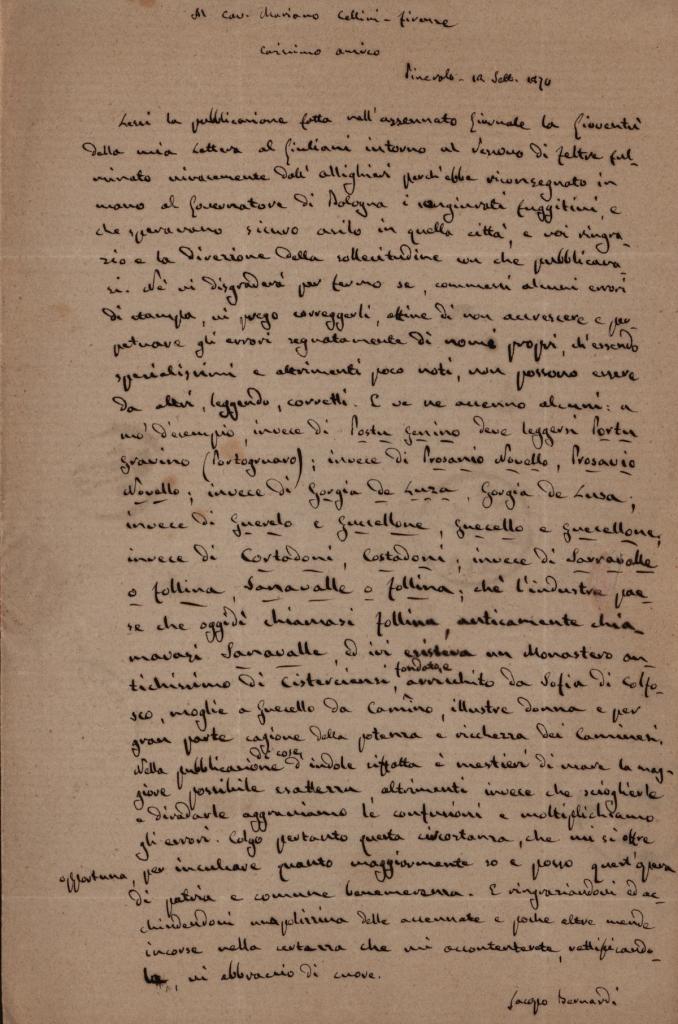 Al Cav. Mariano Cellini - Firenze
Carissimo amico
Pinerolo - 12 Sett. 1870
Lessi la pubblicazione fatta nell'assennato Giornale la Gioventù
della mia Lettera al Giuliani intorno al Vescovo di Feltre ful-
minato vivacemente dall'Allighieri perch'ebbe riconsegnato in
mano al Governatore di Bologna i congiurati fuggitivi, e
che speravano sicuro asilo in quella città, e voi ringra-
zio e la Direzione della sollecitudine con che pubblicava-
si. Nè vi disgraderà per fermo se, commessi alcuni errori
di stampa, vi prego correggerli, affine di non accrescere e per-
petuare gli errori segnatamente di nomi propri, ch'essendo
specialissimi e altrimenti poco noti, non possono essere
da altri, leggendo, corretti. E ve ne accenno alcuni: a
mo' d'esempio, invece di Postu Genino deve leggersi Portu
Gravino (Portogruaro); invece di Prosanio Novello, Prosavio
Novello; invece di Gorgia de Luza, Gorgia de Lusa;
invece di Guerelo e Guccellone, Guecello e Guecellone;
invece di Cortadoni, Costadoni; invece di Sarravalle
o Follina, Sanavalle o Follina; chè l'industre pae-
se che oggidì chiamasi Follina, anticamente chia-
mavasi Sanavalle, ed ivi esisteva un Monastero an-
tichissimo di Cisterciensi, fondato e arricchito da Sofia di Colfo-
sco, moglie a Guecello da Camino, illustre donna e per
gran parte cagione della potenza e ricchezza dei Caminesi.
Nella pubblicazione di cose d'indole siffatta è mestieri di usare la mag-
giore possibile esattezza altrimenti invece che scioglierle
e diradarle aggraviamo le confusioni e moltiplichiamo
gli errori. Colgo pertanto questa circostanza, che mi si offre
opportuna, per inculcare quanto maggiormente so e posso quest'opera
di patria e comune benemerenza. E ringraziandovi ed ac-
chiudendovi una polizzina delle accennate e poche altre mende
incorse nella certezza che mi accontenterete, rettificando-
le, vi abbraccio di cuore.
Jacopo Bernardi